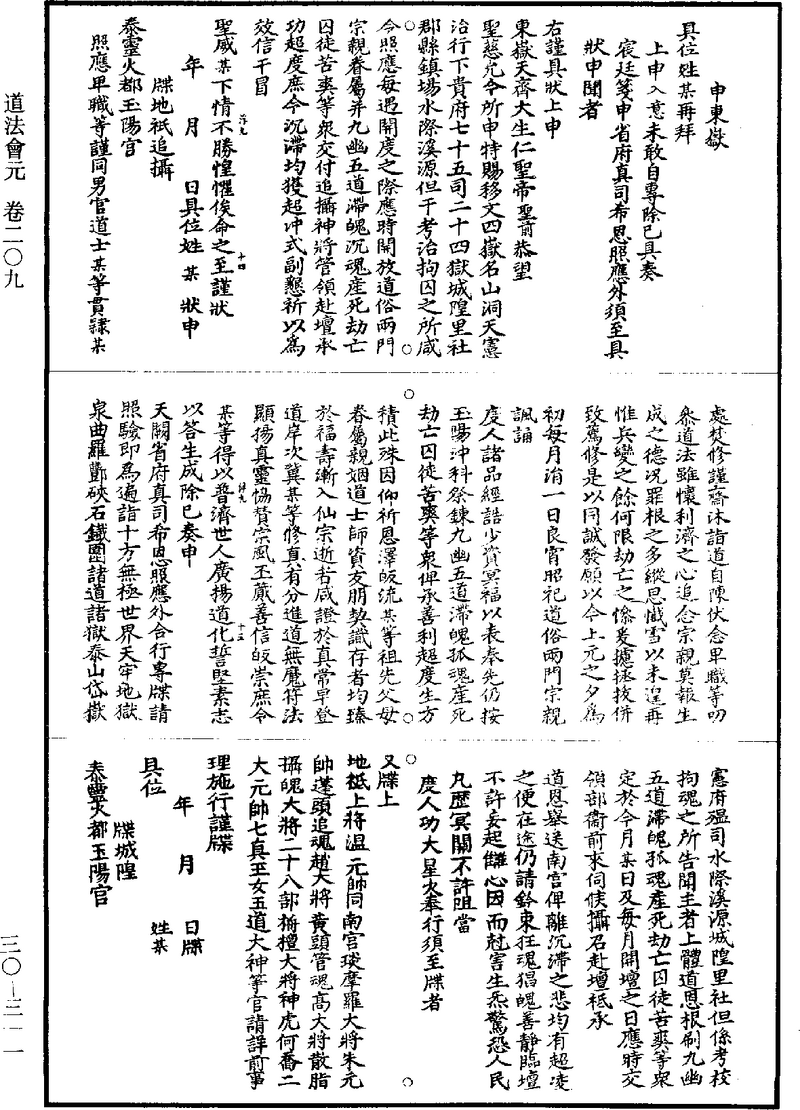 道法會元　卷二〇九
申東嶽
具位姓某再拜
上申入意未敢自專除已具奏
宸廷箋申省府真司希恩照應外須至具
狀申聞者
右謹具狀上申
東嶽天齊大生仁聖帝聖前恭望
聖慈允令所申特賜移文四嶽名山洞天憲
治行下貴府七十五司二十四獄城隍里社
郡縣鎮場水際溪源但干考治拘囚之所咸
令照應每遇開度之際應時開放道俗兩門
宗親眷屬并九幽五道滯魄沉魂產死劫亡
囚徒苦爽等眾交付追攝神將管領赴壇承
功超度庶令沉滯均獲超冲式副懇祈以為
效信干冒
聖威某下情不勝惶懼俟命之至謹狀
年　月　日具位姓某狀申
牒地祇追攝
泰靈火都玉陽宫
照應卑職等謹同男官道士某等貫隸某
處焚修謹齋沐詣道自陳伏念卑職等叨
參道法雖懷利濟之心追念宗親莫報生
成之德況罪根之多縱思懺雪以未遑再
惟兵變之餘何限劫亡之條爰攄拯拔併
致薦修是以同誠發願以今上元之夕為
初每月消一日良宵昭祀道俗兩門宗親
諷誦
度人諸品經誥少資冥福以表奉先仍按
玉陽沖科祭鍊九幽五道滯魄孤魂產死
劫亡囚徒苦爽等眾俾承善利超度生方
積此殊因仰祈恩澤皈流某等祖先父母
眷屬親姻道士師資友朋契識存者均臻
於福壽漸入仙宗逝者咸證於真常早登
道岸次冀某等修真有分進道無魔符法
顯揚真靈協贊宗風丕蕆善信皈崇庶令
某等得以普濟世人廣揚道化誓堅素志
以答生成除已奏申
天闕省府真司希恩照應外合行專牒請
照驗即為遍詣十方無極世界天牢地獄
泉曲羅酆硤石鐵圍諸道諸獄泰山岱嶽
憲府瘟司水際溪源城隍里社但係考校
拘魂之所告聞主者上體道恩根刷九幽
五道滯魄孤魂產死劫亡囚徒苦爽等眾
定於今月某日及每月開壇之日應時交
領部衛前來伺候攝召赴壇祗承
道恩舉送南宫俾離沉滯之悲均有超凌
之便在途仍請鈐束狂魂猖魄善靜臨壇
不許妄起讎心因而尅害生炁驚恐人民
九歷冥關不許阻當
度人功大星火奉行須至牒者
又牒上
地祇上將溫元帥同南宫琰摩羅大將朱元
帥蓬頭追魂趙大將黄頭管魂高大將散脂
攝魄大將二十八部栴檀大將神虎何喬二
大元帥七真玉女五道大神等官請詳前事
理施行謹牒
年　月　日牒
具位　姓某
牒城隍
泰靈火都玉陽宫
三〇—三一一